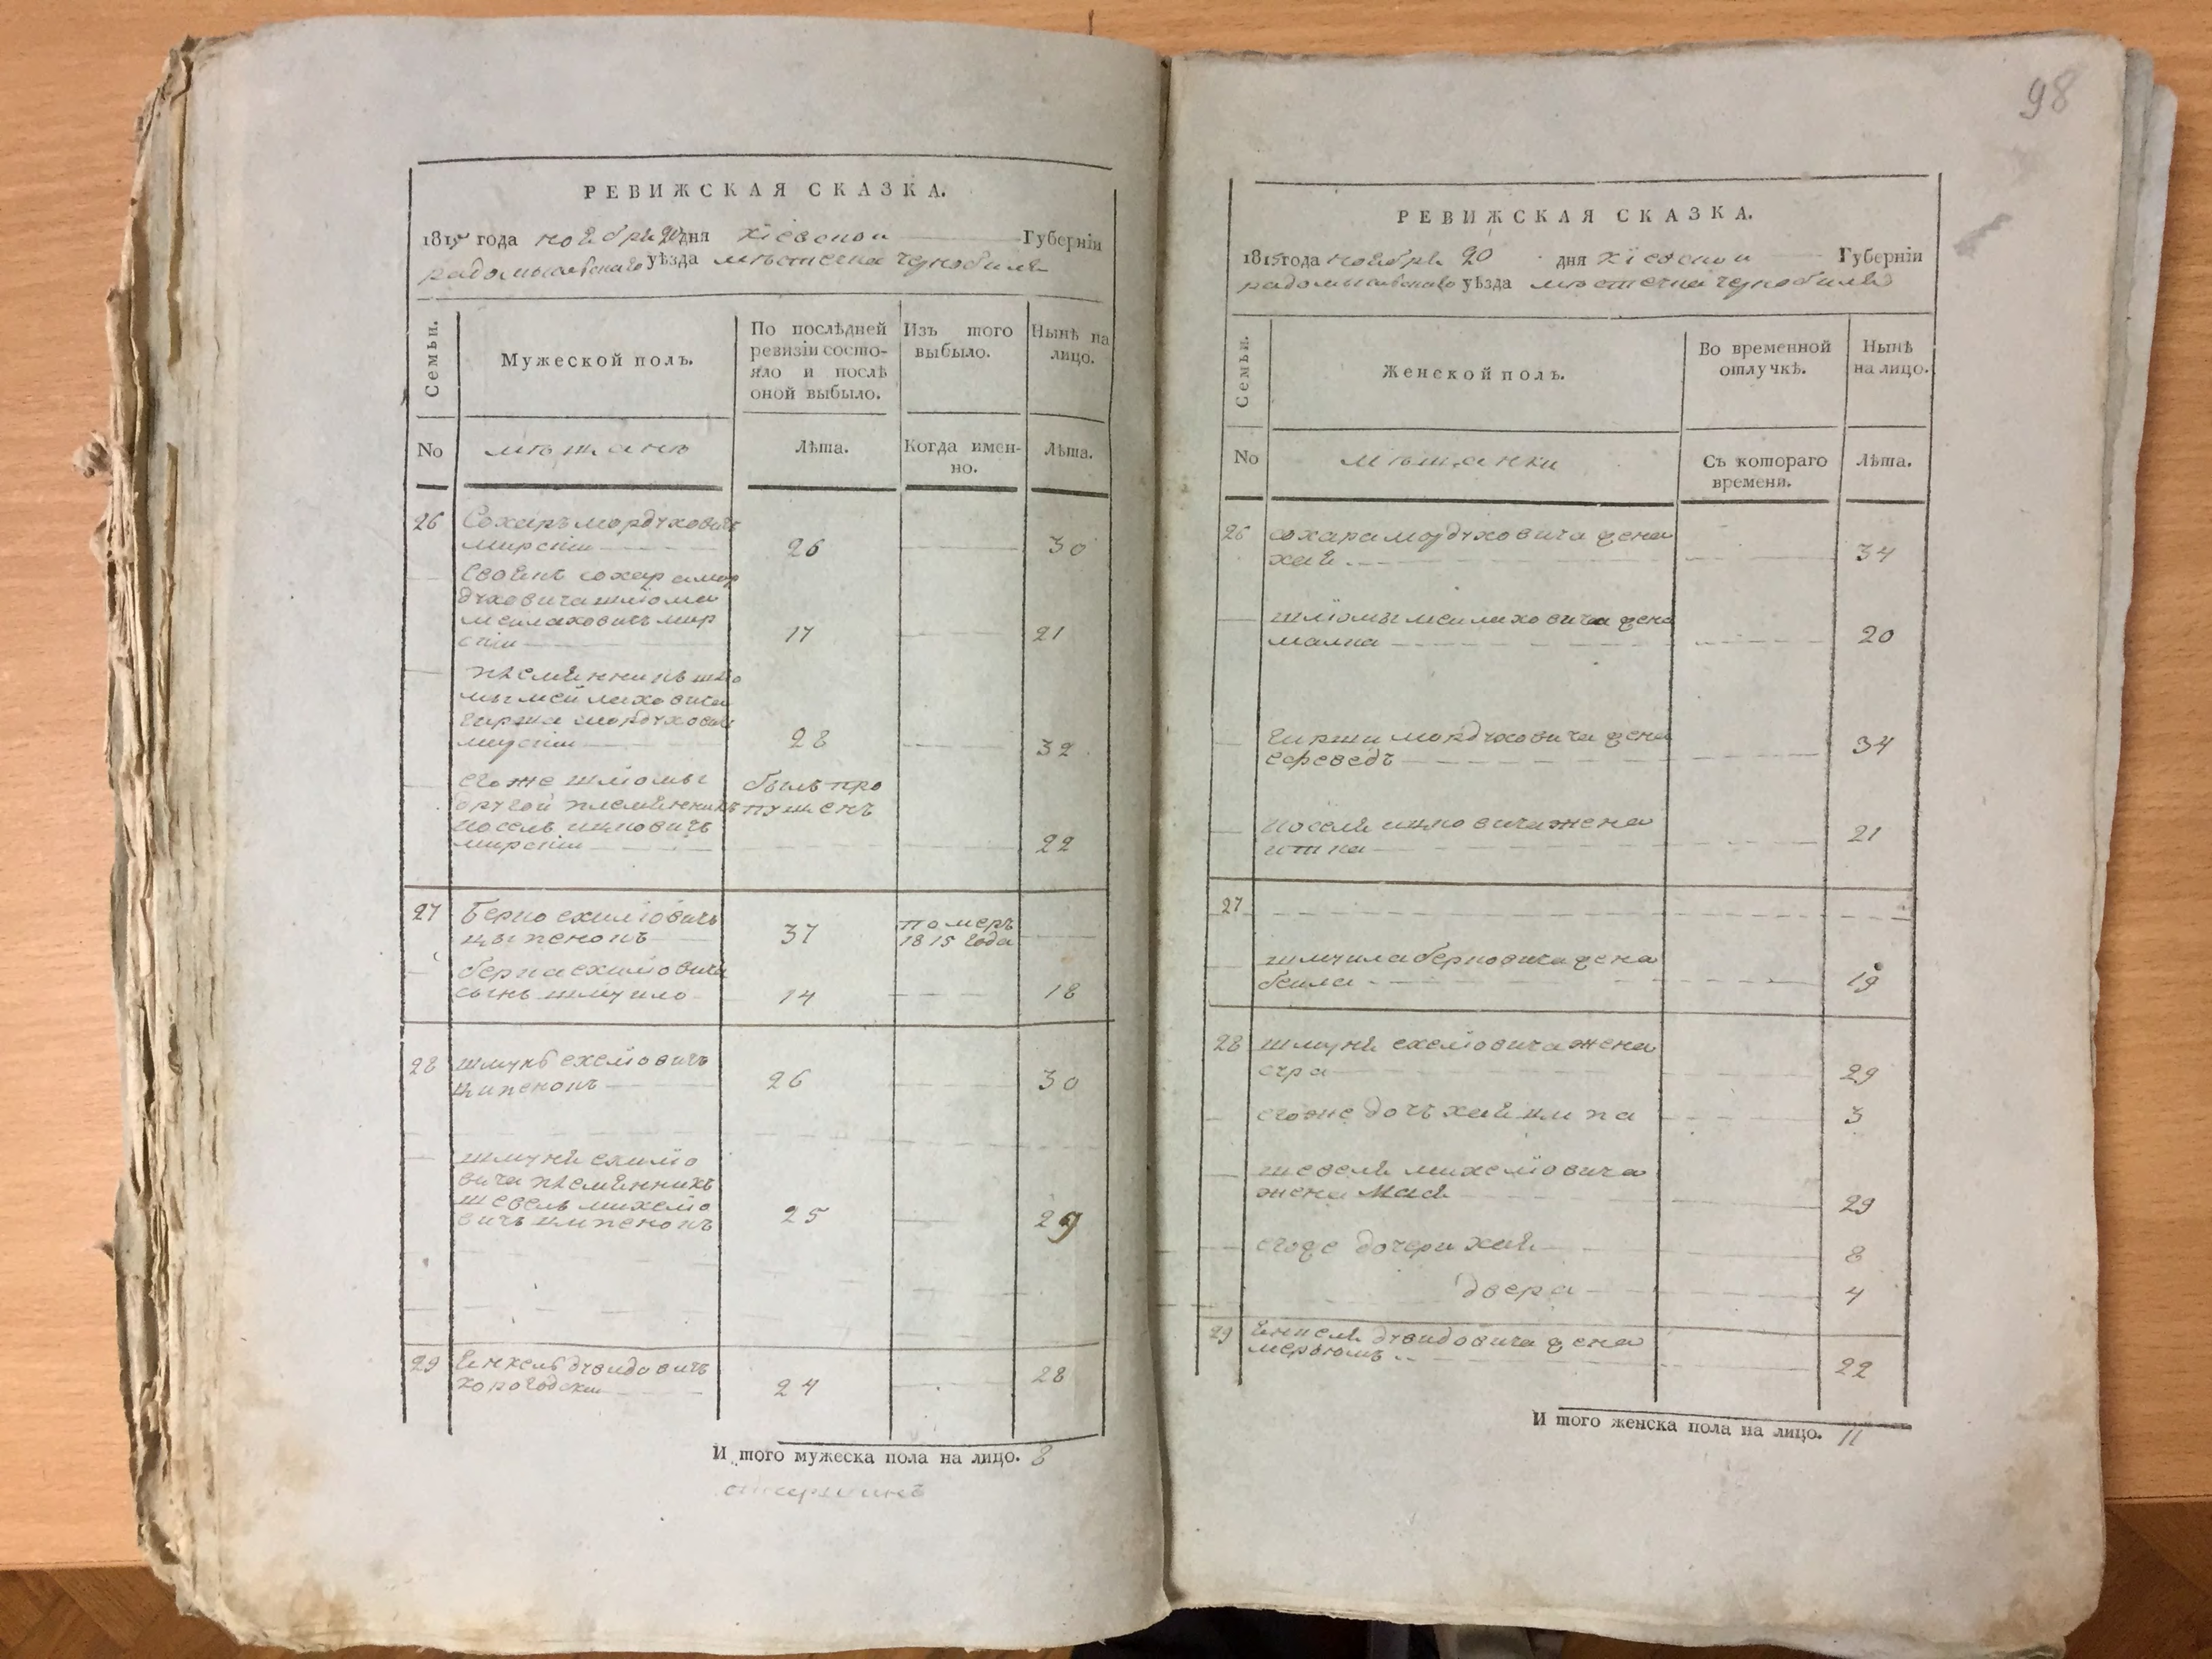 98
РЕВИЖСКАЯ СКАЗКА.
1815 года ноября 20 дня кіевской Губерніи
радомысльскаго уѣзда мѣстечка чернобиля
Семьи.
Мужеской полъ.
По послѣдней
ревизіи состо-
яло и послѣ
оной выбыло.
Изъ того
выбыло.
Нынѣ на
лицо.
No
мѣщанъ
Лѣта.
Когда имен-
но.
Лѣта.
26 Сохаръ мордуховичъ
мирскій 26 30
Своякъ сохара мор
духовича шліома
меилаховичъ мир
скій 17 21
племянникъ шліо
мы меилаховича
гирша мордухович
мирскій 28 32
егоже шліомы былъ про
другой племянникъ пущенъ
иосель ицковичъ
мирскій 22
27 Берко ехиліовичъ померъ
цыпенокъ 37 1815 года
берка ехиліовича
сынъ шмуило 14 18
28 шмуль ехеліовичъ
ципенокъ 26 30
шмуля ехиліо
вича племянникъ
шевель михеліо
вичъ ципенокъ 25 29
29 Янкель дувидовичъ
хопогодски 24 28
И того мужеска пола на лицо. 8
РЕВИЖСКАЯ СКАЗКА.
1815 года ноября 20 дня кіевской Губерніи
радомысльскаго уѣзда мѣстечка чернобиля
Семьи.
Женской полъ.
Во временной
отлучкѣ.
Нынѣ
на лицо.
No
мѣщанки
Съ котораго
времени.
Лѣта.
26 сохара мордуховича жена
хая 34
шліомы меилаховича жена
малка 20
гирши мордуховича жена
ефеведъ 34
иоселя ицковича жена
итка 21
27
шмуила берковича жена
беила 19
28 шмуля ехеліовича жена
сура 29
егоже дочъ хаяципа 3
шевеля михеліовича
жена Мая 29
егоже дочери хая 8
двера 4
29 Янкеля дувидовича жена
мерьюмъ 22
И того женска пола на лицо. 11